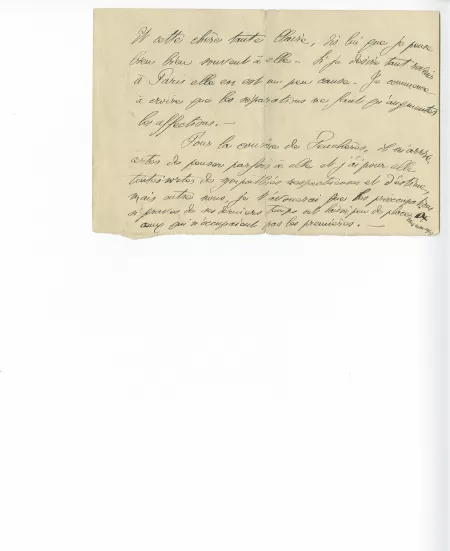 Et cette chère tante Claire, dis lui que je pense
bien bien souvent à elle. - Si je désire tant
à Paris elle en est un peu cause. - Je commence
à croire que les séparations ne font qu'augmenter
les affections. -
Pour la cousine de, il m'arrive
certes de penser parfois à elle et j'ai pour elle
toutes sortes de sympathies respectueuses et d'estime,
mais entre nous, je t'avouerai que les préoccupations
de ces derniers temps ont laissé peu de place
à ceux qui n'occupaient pas les premières. -